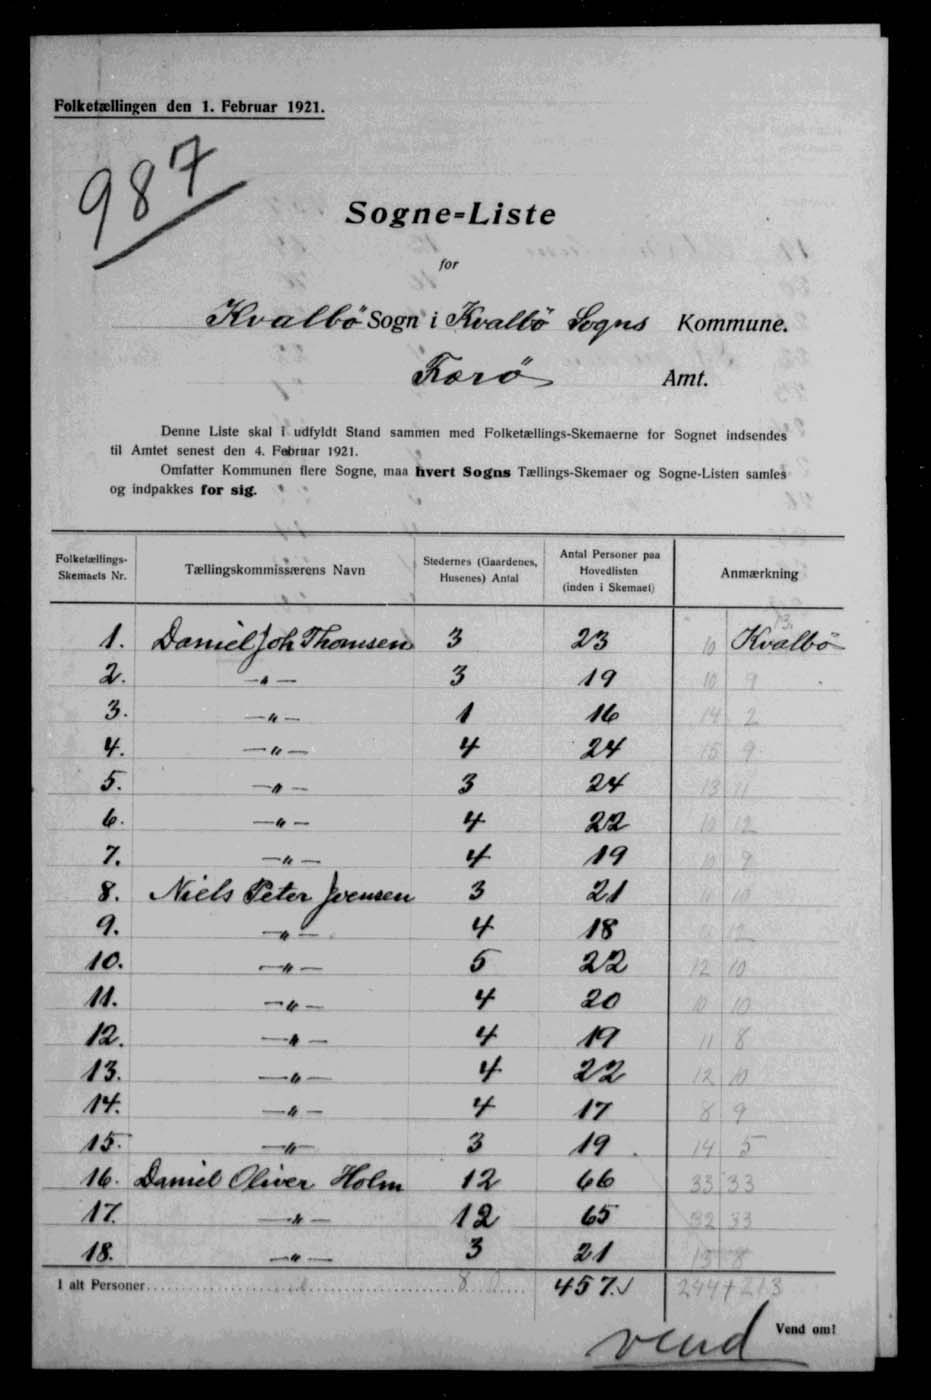 Folketællingen den 1. Februar 1921.
987
Sogne=Liste
for
Kvalbö Sogn i Kvalbö Sogns Kommune.
Færö Amt.
Denne Liste skal i udfyldt Stand sammen med Folketællings-Skemaerne for Sognet indsendes
til Amtet senest den 4. Februar 1921.
Omfatter Kommunen flere Sogne, maa hvert Sogns Tællings-Skemaer og Sogne-Listen samles
og indpakkes for sig.
Folketællings-Skemaets Nr. Tællingskommissærens Navn Stedernes (Gaardenes, Husenes) Antal Antal Personer paa Hovedlisten (inden i Skemaet) Anmærkning
13.
1. Daniel Joh Thomsen 3 23 10 Kvalbö
2. —„— 3 19 10 9
3. —„— 1 16 14 2
4. —„— 4 24 15 9
5. —„— 3 24 13 11
6. —„— 4 22 10 12
7. —„— 4 19 10 9
8. Niels Peter Joensen 3 21 11 10
9. —„— 4 18 12
10. —„— 5 22 12 10
11. —„— 4 20 10 10
12. —„— 4 19 11 8
13. —„— 4 22 12 10
14. —„— 4 17 8 9
15. —„— 3 19 14 5
16. Daniel Oliver Holm 12 66 33 33
17. —„— 12 65 32 33
18. —„— 3 21 13 8
I alt Personer 80 457. 244 + 213
Vend om!
vend